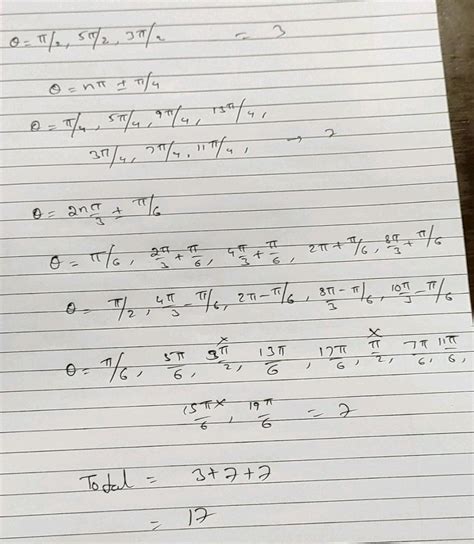 θ = π/2, 5π/2, 3π/2 = 3
θ = nπ ± π/4
θ = π/4, 5π/4, 9π/4, 13π/4,
3π/4, 7π/4, 11π/4, → 7
θ = 2nπ/3 ± π/6
θ = π/6, 2π/3 + π/6, 4π/3 + π/6, 2π + π/6, 8π/3 + π/6
θ = π/2, 4π/3 - π/6, 2π - π/6, 8π/3 - π/6, 10π/3 - π/6
θ = π/6, 5π/6, 3π/2 ×, 13π/6, 17π/6, π/2 ×, 7π/6, 11π/6,
15π/6 ×, 19π/6 = 7
Total = 3+7+7
= 17